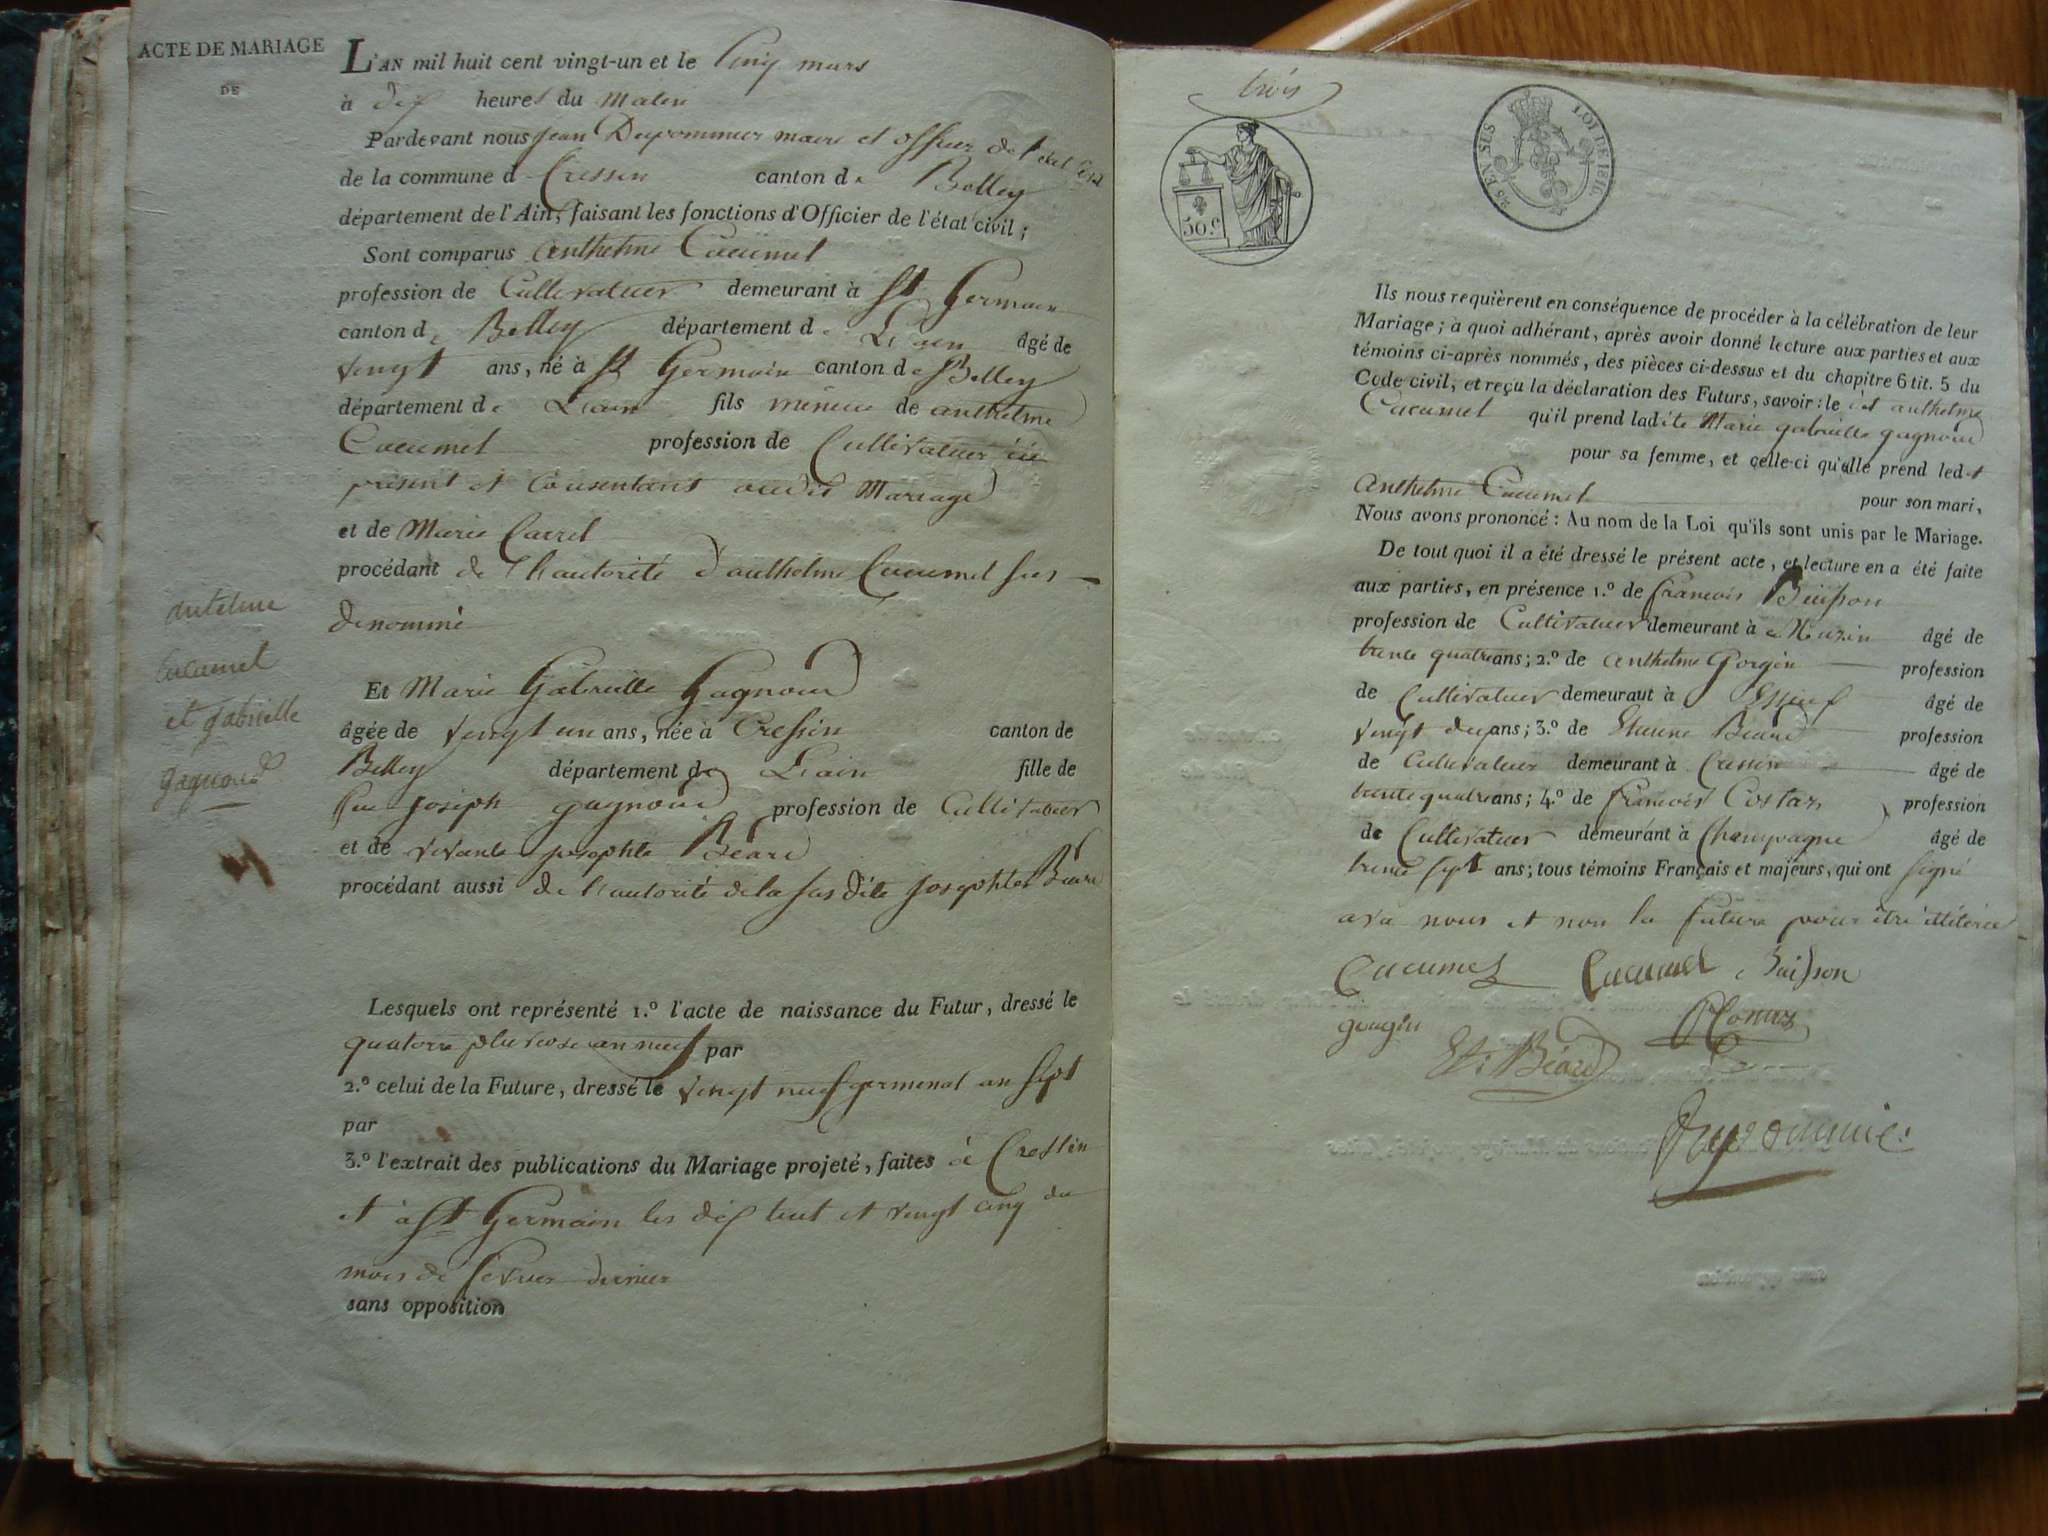 ACTE DE MARIAGE
DE
antelme
Cucumel
et gabrielle
gagnoud
L'AN mil huit cent vingt-un et le Cinq mars
à dix heures du matin
Pardevant nous Jean Dupommier maire et officier de l'etat Civil
de la commune de Cressin canton de Belley
département de l'Ain, faisant les fonctions d'Officier de l'état civil;
Sont comparus anthelme Cucumel
profession de Cultivateur demeurant à St Germain
canton de Belley département de L'ain âgé de
vingt ans, né à St Germain canton de Belley
département de L'ain fils mineur de anthelme
Cucumel profession de Cultivateur ici
présent et Consentant audit Mariage
et de Marie Carrel
procédant de l'hautorité d'anthelme Cucumel sus
denommé
Et Marie Gabrielle Gagnoud
âgée de vingt un ans, née à Cressin canton de
Belley département de L'ain fille de
feu Joseph gagnoud profession de Cultivateur
et de vivante josephte Béard
procédant aussi de l'autorité de la sus dite Josephte Béard
Lesquels ont représenté 1.º l'acte de naissance du Futur, dressé le
quatorze pluviose an neuf par
2.º celui de la Future, dressé le vingt neuf germinal an sept
par
3.º l'extrait des publications du Mariage projeté, faites à Cressin
et à St Germain les dix huit et vingt cinq du
mois de fevrier dernier
sans opposition
trois
50.c
25 EN SUS
LOI DE 1816
Ils nous requièrent en conséquence de procéder à la célébration de leur
Mariage; à quoi adhérant, après avoir donné lecture aux parties et aux
témoins ci-après nommés, des pièces ci-dessus et du chapitre 6 tit. 5 du
Code civil, et reçu la déclaration des Futurs, savoir: le dit anthelme
Cucumel qu'il prend ladite Marie gabrielle gagnoud
pour sa femme, et celle-ci qu'elle prend ledit
anthelme Cucumel pour son mari,
Nous avons prononcé: Au nom de la Loi qu'ils sont unis par le Mariage.
De tout quoi il a été dressé le présent acte, et lecture en a été faite
aux parties, en présence 1.º de francois Buisson
profession de Cultivateur demeurant à âgé de
trente quatre ans; 2.º de anthelme Gorgin profession
de Cultivateur demeurant à âgé de
vingt deux ans; 3.º de Etienne Béard profession
de Cultivateur demeurant à Cressin âgé de
trente quatre ans; 4.º de francois Costaz profession
de Cultivateur demeurant à Champagne âgé de
trente sept ans; tous témoins Français et majeurs, qui ont signé
avec nous et non la future pour être illitérée
Cucumel Cucumel Buisson
gougin
Et. Béard
Dupommier